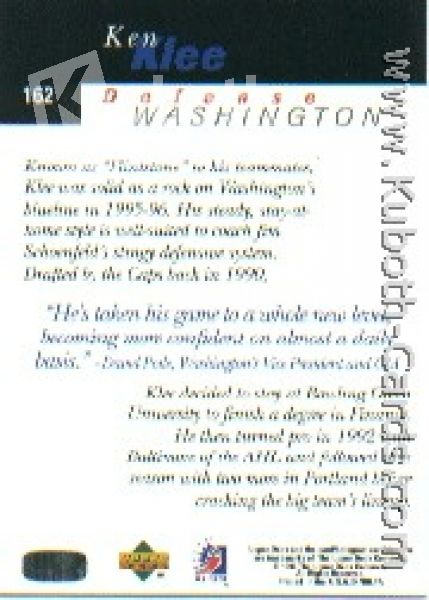 Ken
Klee
162
Defense
WASHINGTON
Known as "Flintstone" to his teammates,
Klee was solid as a rock on Washington's
blueline in 1995-96. His steady, stay-at-
home style is well-suited to coach Jim
Schoenfeld's stingy defensive system.
Drafted by the Caps back in 1990,
"He's taken his game to a whole new level,
becoming more confident on almost a daily
basis." - Poile, Washington's Vice President and
Klee decided to stay at Bowling Green
University to finish a degree in
He then turned pro in 1992 with
Baltimore of the AHL and followed
season with two more in Portland before
cracking the big team's lineup.
www.Kuboth-Cards.com